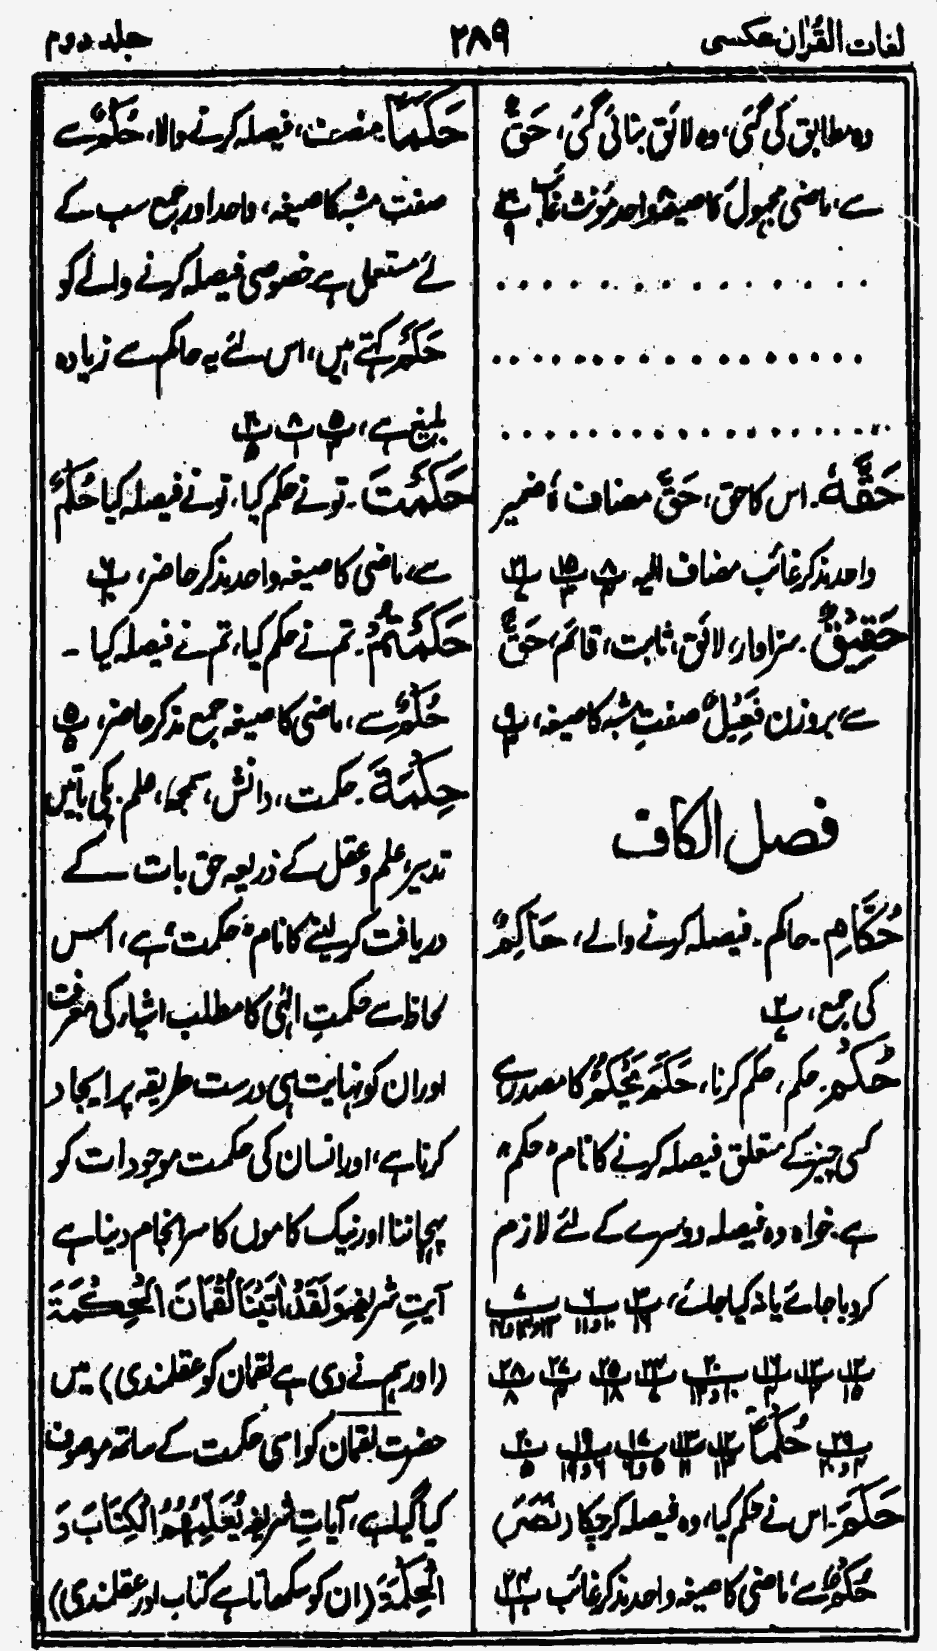 لغات القرآن عکسی ۲۸۹ جلد دوم
وہ مطابق کی گئی، وہ لائق بنائی گئی، حَقٌّ
سے، ماضی مجہول کا صیغہ واحد مؤنث غائب پ۳۰ ۹
. . . . . . . . . . . . . .
. . . . . . . . . . . . . . . .
. . . . . . . . . . . . . . . . .
حَقَّہٗ۔ اس کا حق، حَقَّ مضاف ہٗ ضمیر
واحد مذکر غائب مضاف الیہ۔ پ۸ ۴ پ۱۵ ۳ پ۲۱ ۷
حَقِیْقٌ۔ سزاوار، لائق، ثابت، قائم، حَقٌّ
سے، بروزن فَعِیْلٌ صفتِ مشبہ کا صیغہ، پ۹ ۳
فصل الکاف
حُکَّامِ۔ حاکم۔ فیصلہ کرنے والے، حَاکِمٌ
کی جمع، پ۲ ۷
حُکْمُ۔ حکم، حکم کرنا، حَکَمَ یَحْکُمُ کا مصدر ہے
کسی چیز کے متعلق فیصلہ کرنے کا نام "حکم"
ہے۔ خواہ وہ فیصلہ دوسرے کے لئے لازم
کر دیا جائے یا نہ کیا جائے، پ۳ ۱۶ پ۶ ۱۰و۱۱ پ۷
پ۱۲ ۱۵ پ۱۳ ۲ پ۱۶ ۴ پ۲۰ ۱۰و۱۲ پ۲۳ ۷ پ۲۵ ۱۸ پ۲۷ ۴ پ۲۸ ۸
پ۲۹ ۴و۲۰ حُکْمًا پ۱۲ ۱۳ پ۱۳ ۱۱ پ۱۷ ۵و۶ پ۱۹ ۶و۱۹ پ۲۰ ۵
حَکَمَ۔ اس نے حکم کیا، وہ فیصلہ کر چکا (نَصَرَ)
حُکْمٌ سے، ماضی کا صیغہ واحد مذکر غائب پ۲۴
حَکَمًا۔ منصف، فیصلہ کرنے والا، حُکْمٌ سے
صفت مشبہ کا صیغہ، واحد اور جمع سب کے
لئے مستعمل ہے خصوصی فیصلہ کرنے والے کو
حَکَمٌ کہتے ہیں، اس لئے یہ حاکم سے زیادہ
بلیغ ہے، پ۵ ۳ پ۸ ۱ پ۲۰ ۵
حَکَمْتَ۔ تو نے حکم کیا، تو نے فیصلہ کیا حُکْمٌ
سے، ماضی کا صیغہ واحد مذکر حاضر، پ۶ ۱۰
حَکَمْتُمْ۔ تم نے حکم کیا، تم نے فیصلہ کیا۔
حُکْمٌ سے، ماضی کا صیغہ جمع مذکر حاضر، پ۵ ۵
حِکْمَۃَ۔ حکمت، دانش، سمجھ، علم۔ پکی باتیں
تدبیر، علم و عقل کے ذریعہ حق بات کے
دریافت کر لینے کا نام "حکمت" ہے، اس
لحاظ سے حکمتِ الٰہی کا مطلب اشیاء کی معرفت
اور ان کو نہایت ہی درست طریقہ پر ایجاد
کرنا ہے، اور انسان کی حکمت موجودات کو
پہچاننا اور نیک کاموں کا سر انجام دینا ہے
آیتِ شریفہ وَلَقَدْ اٰتَیْنَا لُقْمَانَ الْحِکْمَۃَ
(اور ہم نے دی ہے لقمان کو عقلمندی) میں
حضرت لقمان کو اسی حکمت کے ساتھ موصوف
کیا گیا ہے، آیاتِ شریفہ یُعَلِّمُهُمُ الْکِتَابَ وَ
الْحِکْمَۃَ (ان کو سکھاتا ہے کتاب اور عقلمندی)